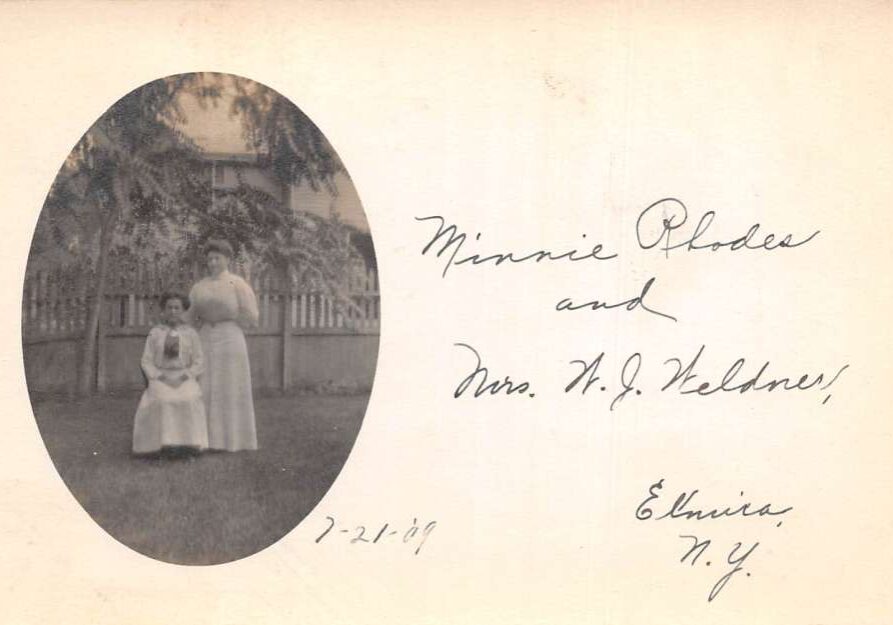 Minnie Rhodes
and
Mrs. W. J. Weldner,
Elmira,
N. Y.
7-21-'09